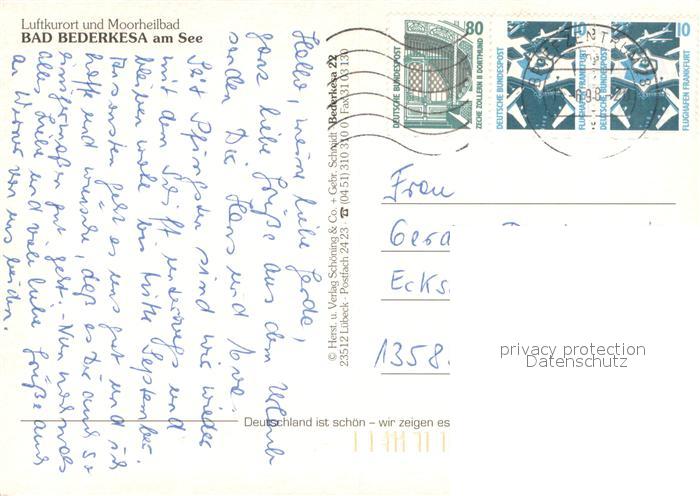 Luftkurort und Moorheilbad
BAD BEDERKESA am See
Hallo, meine liebe Gerda,
ganz liebe Grüße aus dem Urlaub
senden Dir Hans und
Seit Pfingsten sind wir wieder
mit dem Schiff unterwegs und
bleiben wohl bis Mitte September.
Ansonsten geht es uns gut und ich
hoffe und wünsche, daß es Dir auch so
einigermaßen gut geht. - Nun nochmals
alles Liebe und viele liebe Grüße auch
an Werner von uns beiden.
© Herst. u. Verlag Schöning & Co. + Gebr. Schmidt · Bederkesa 22
23512 Lübeck · Postfach 24 23 · ☎ (04 51) 310 310 0 · Fax 31 03 130
80
DEUTSCHE BUNDESPOST
ZECHE ZOLLERN II DORTMUND
10
DEUTSCHE BUNDESPOST
FLUGHAFEN FRANKFURT
10
DEUTSCHE BUNDESPOST
FLUGHAFEN FRANKFURT
Frau
Gera
Ecks
1358.
privacy protection
Datenschutz
Deutschland ist schön – wir zeigen es